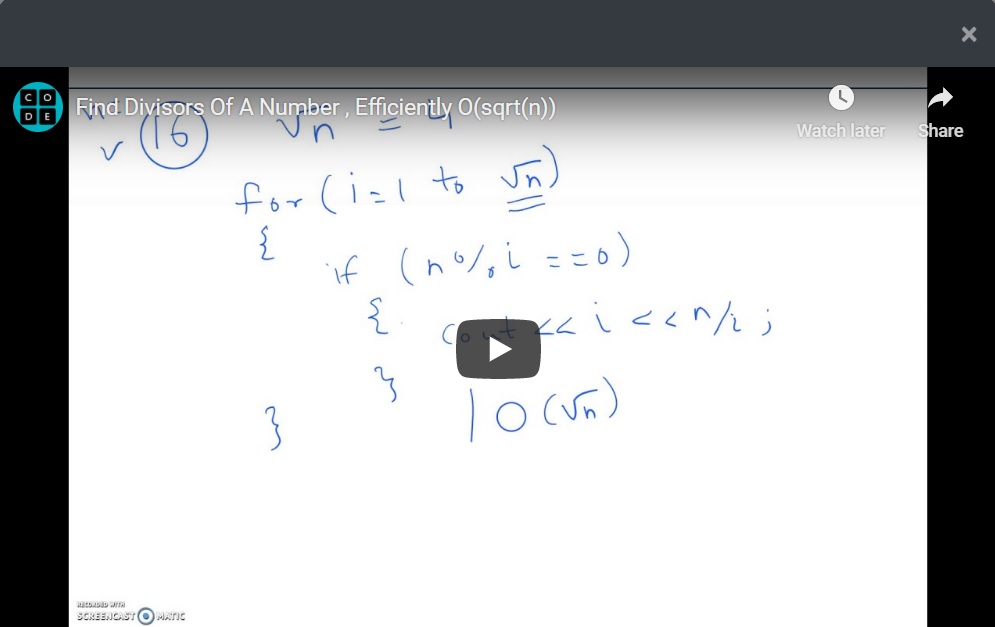 CODE
Find Divisors Of A Number , Efficiently O(sqrt(n))
Watch later
Share
16 √n = 4
for (i=1 to √n)
{
if (n % i ==0)
{ cout << i << n/i ;
}
} | O (√n)
RECORDED WITH
SCREENCAST MATIC